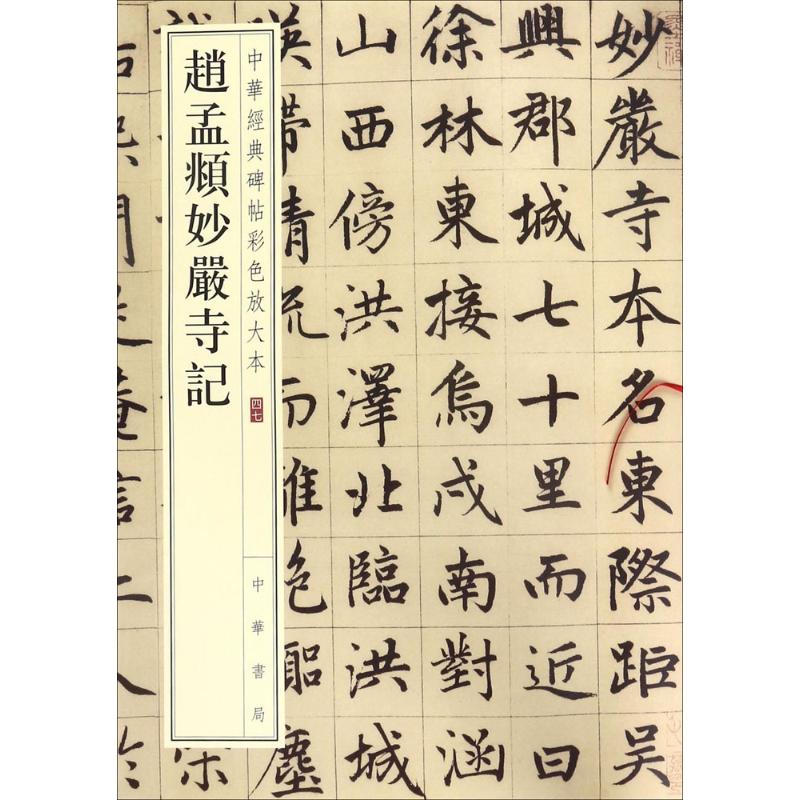 妙嚴寺本名東際距吳
興郡城七十里而近曰
徐林東接烏戍南對涵
山西傍洪澤北臨洪城
塵
中華經典碑帖彩色放大本 四七
中華書局
趙孟頫妙嚴寺記